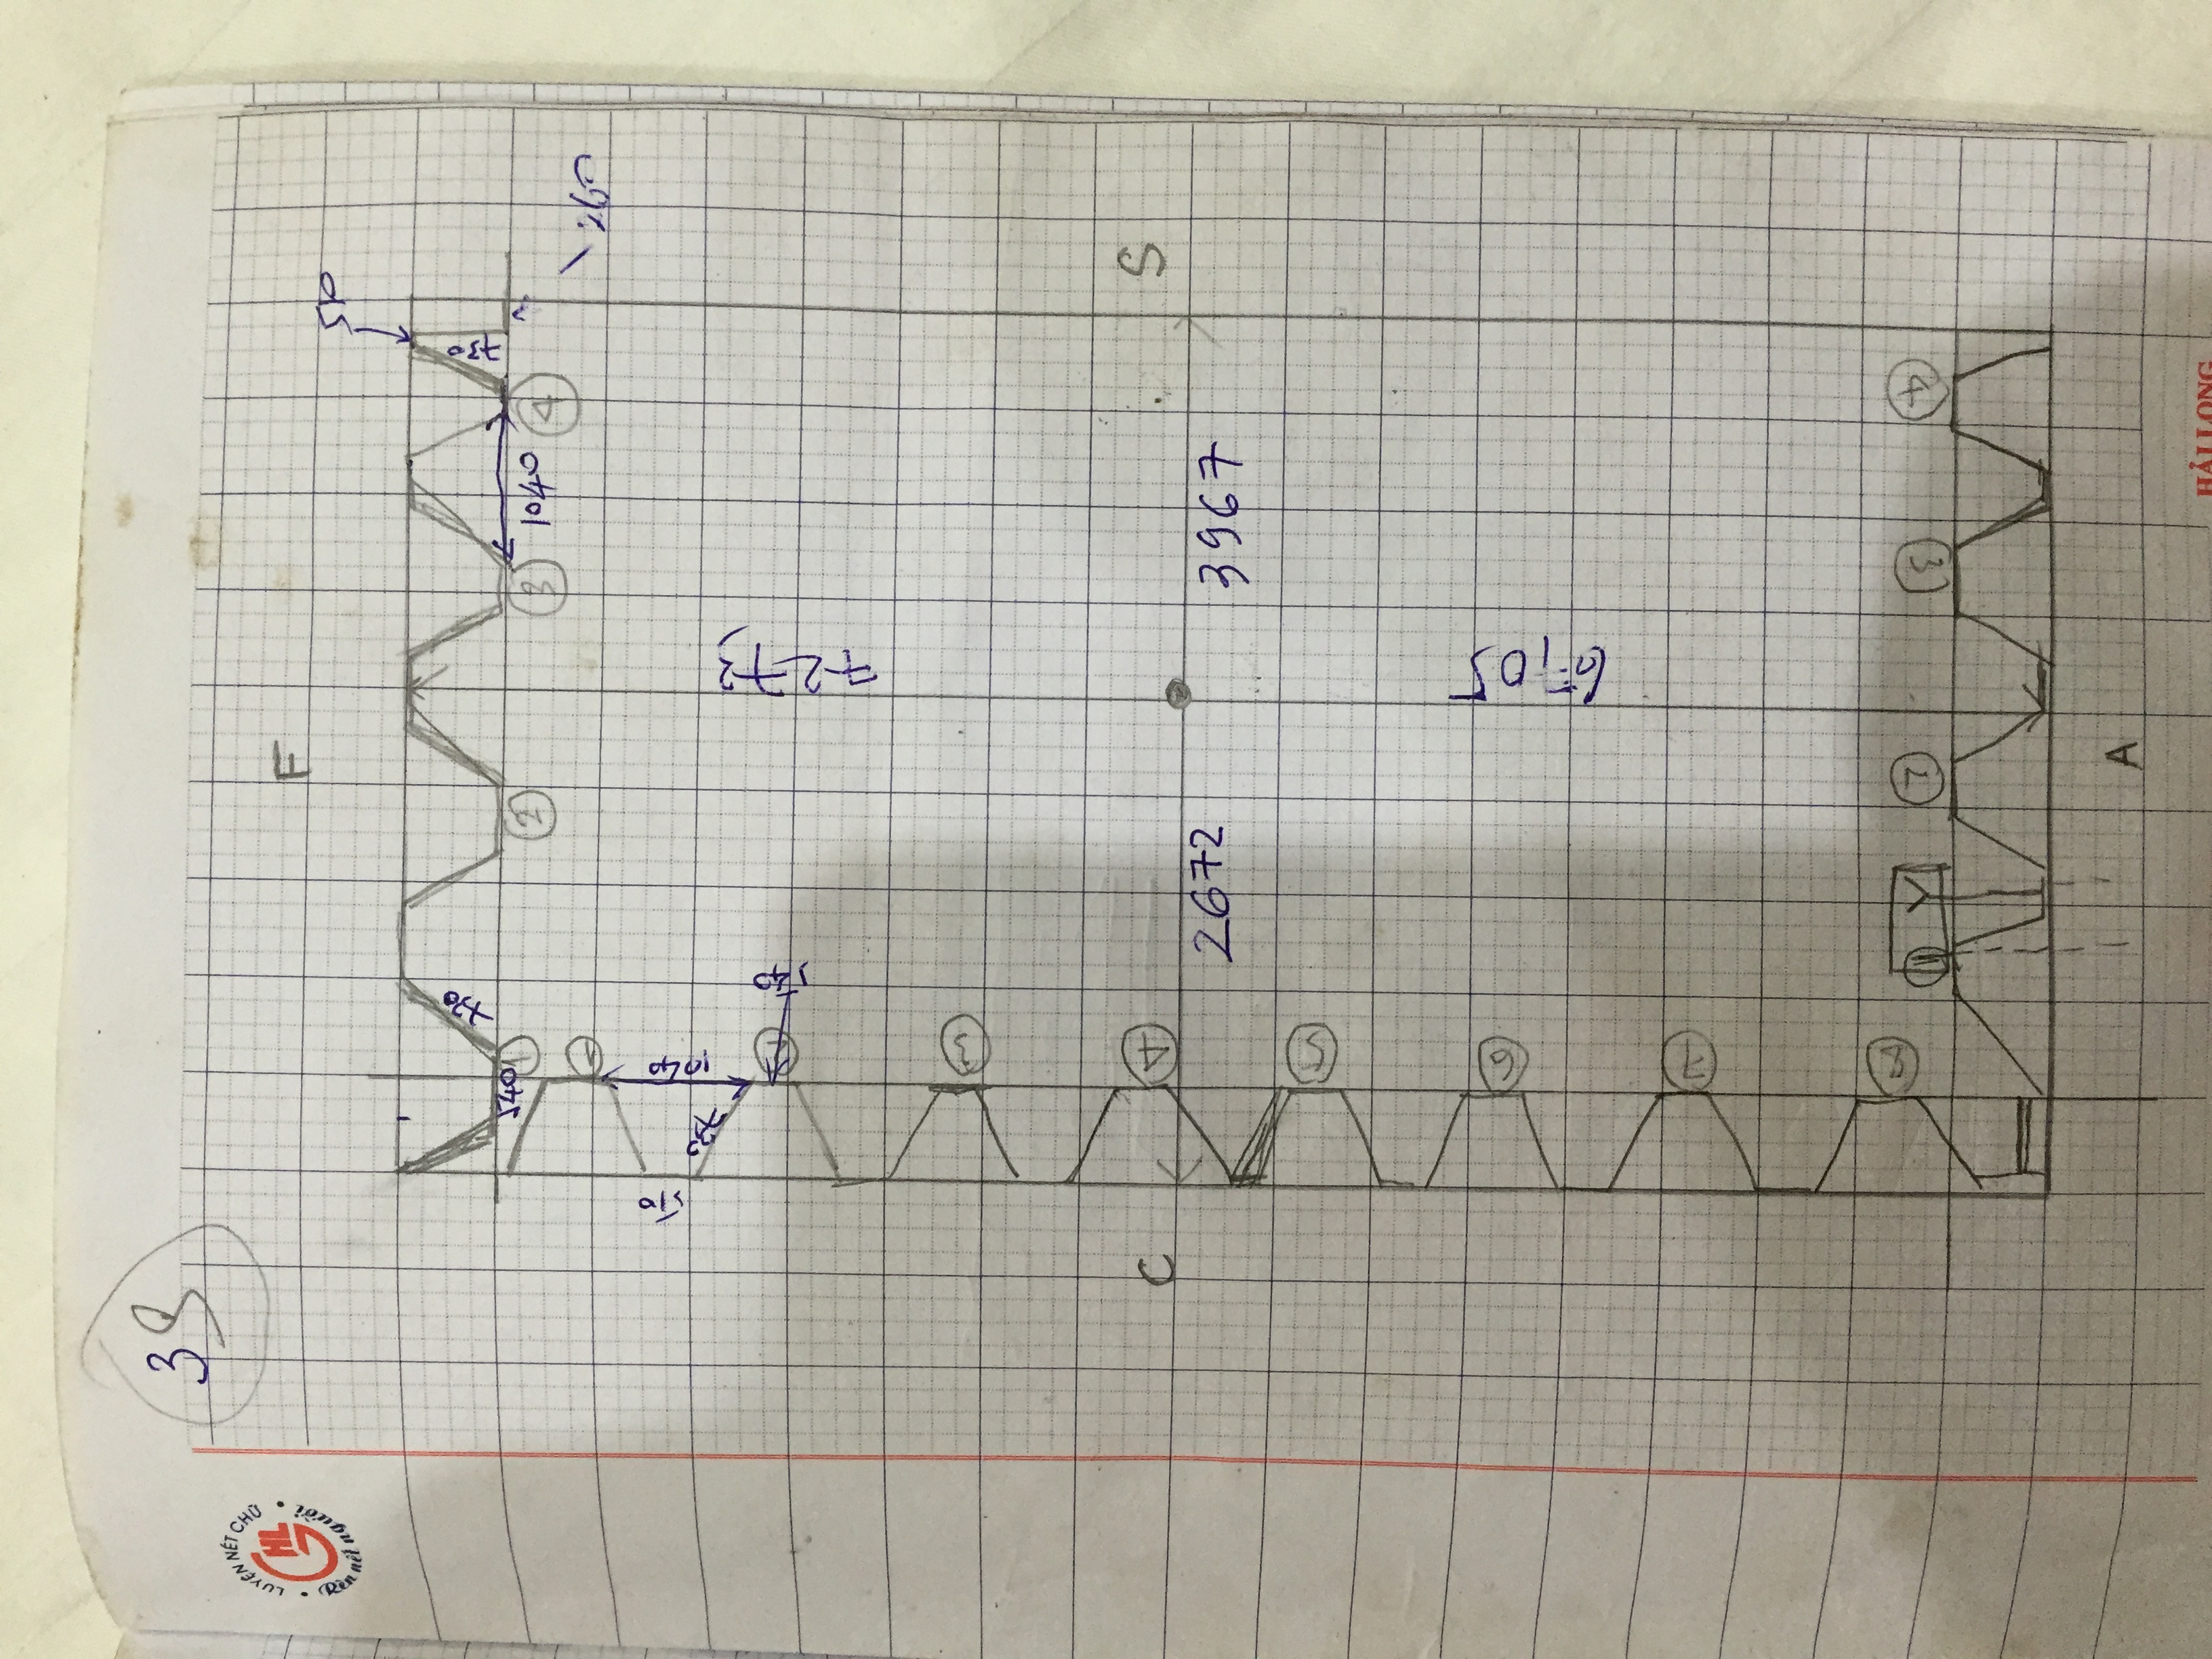 3S
LUYỆN NÉT CHỮ
HL
G
Rèn nết người
F
50
730
730
540
1
2
3
1040
4
260
1
510
730
1040
2
540
7273
3
C
4
S
2672
3967
5
6105
6
7
8
1
2
3
4
A
HẢI LONG